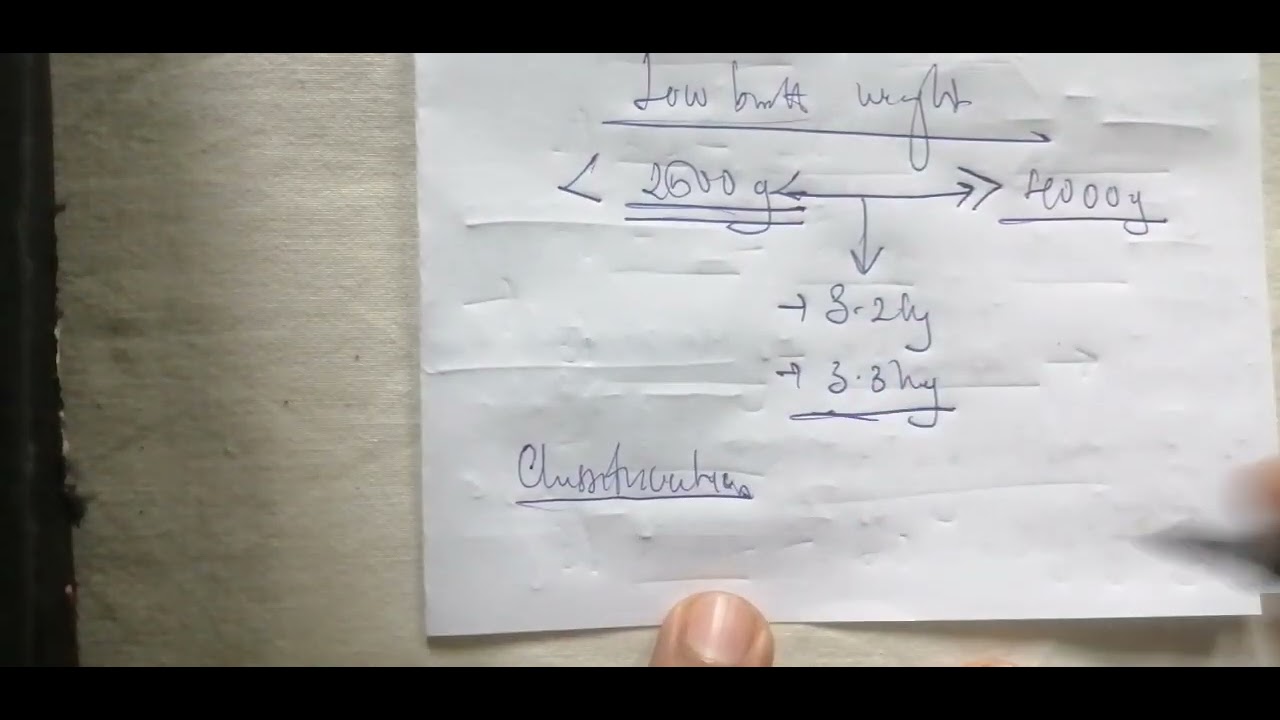 Low birth weight
< 2500g <-> > 4000g
→ 3.2kg
→ 3.3kg
Classification